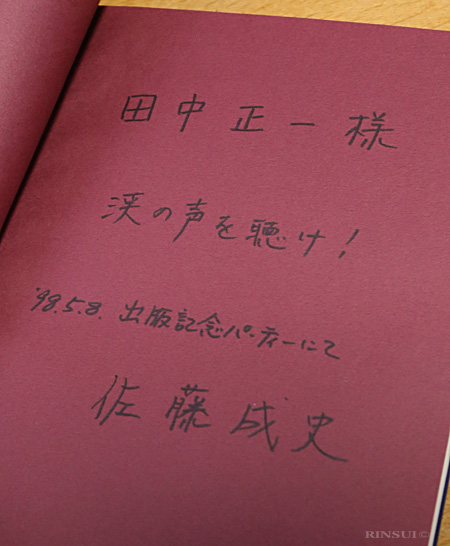 田中正一様
渓の声を聴け!
'98.5.8. 出版記念パーティーにて
佐藤成史
RINSUI©